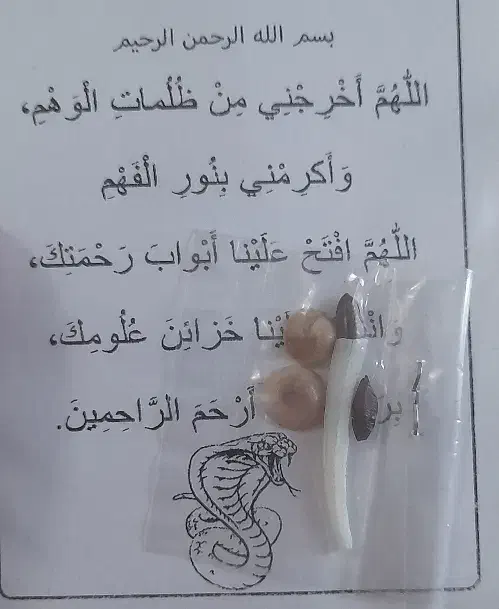 بسم الله الرحمن الرحيم
اللّٰهُمَّ أَخْرِجْنِي مِنْ ظُلُماتِ الْوَهْمِ،
وَأَكرِمْنِي بِنُورِ الْفَهْمِ
اللّٰهُمَّ افْتَحْ عَلَيْنا أَبْوابَ رَحْمَتِكَ،
خَزائِنَ عُلُومِكَ،
أَرْحَمَ الرَّاحِمِينَ.